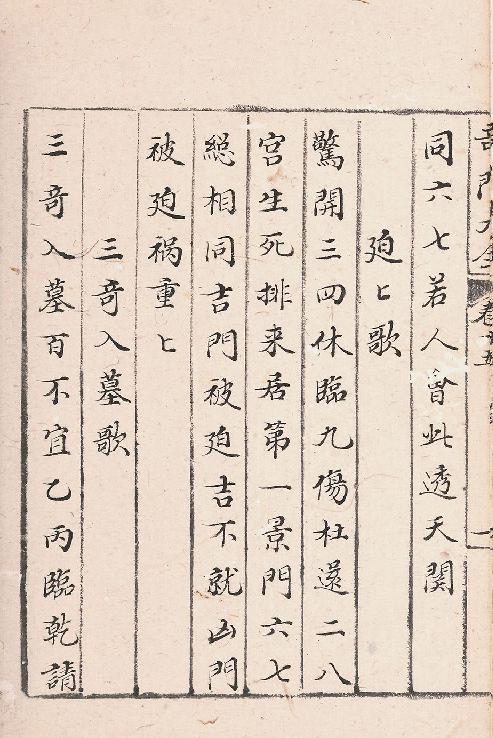 奇門大全
同六七若人會此透天関
廹〻歌
驚開三四休臨九傷杜還二八
宫生死排来居第一景門六七
総相同吉門被廹吉不就凶門
被廹祸重〻
三竒入墓歌
三竒入墓百不宜乙丙臨乾請